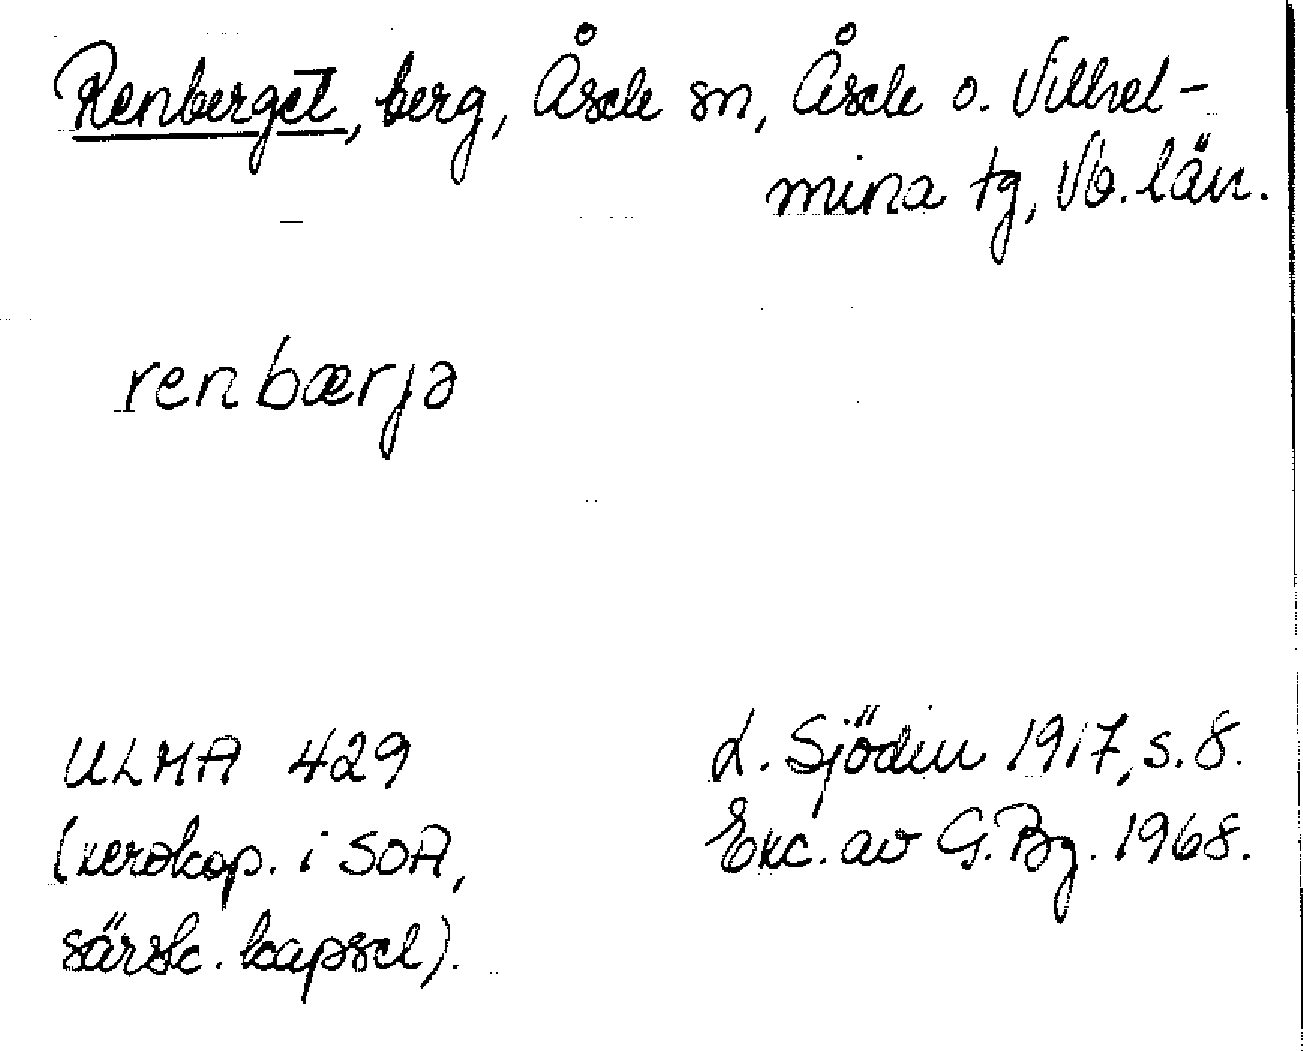 Renberget, berg, Åsele sn, Åsele o. Vilhel-
mina tg, Vb. län.
renbærjə
ULMA 429
(xerokop. i SOA,
särsk. kapsel).
L. Sjödin 1917, s. 8.
Exc. av G. Bg. 1968.